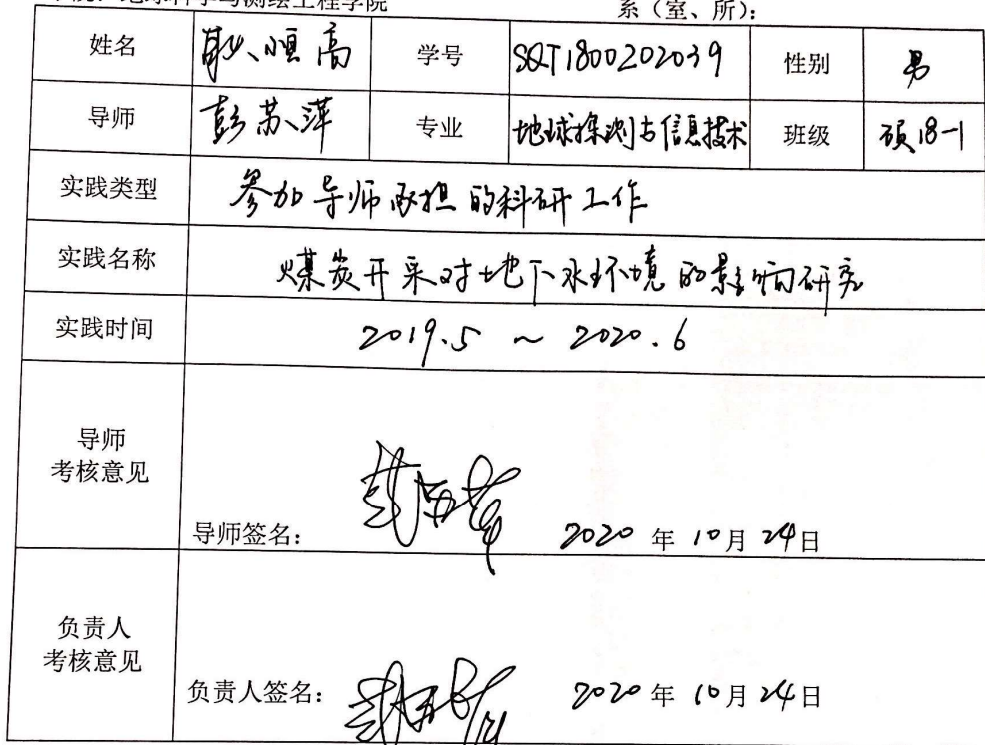 地球科学与测绘工程学院 系（室、所）：
姓名 耿恒高 学号 SQT1800202039 性别 男
导师 彭苏萍 专业 地球探测与信息技术 班级 硕18-1
实践类型 参加导师承担的科研工作
实践名称 煤炭开采对地下水环境的影响研究
实践时间 2019.5 ~ 2020.6
导师
考核意见
导师签名： 2020 年 10 月 24 日
负责人
考核意见
负责人签名： 2020 年 10 月 24 日